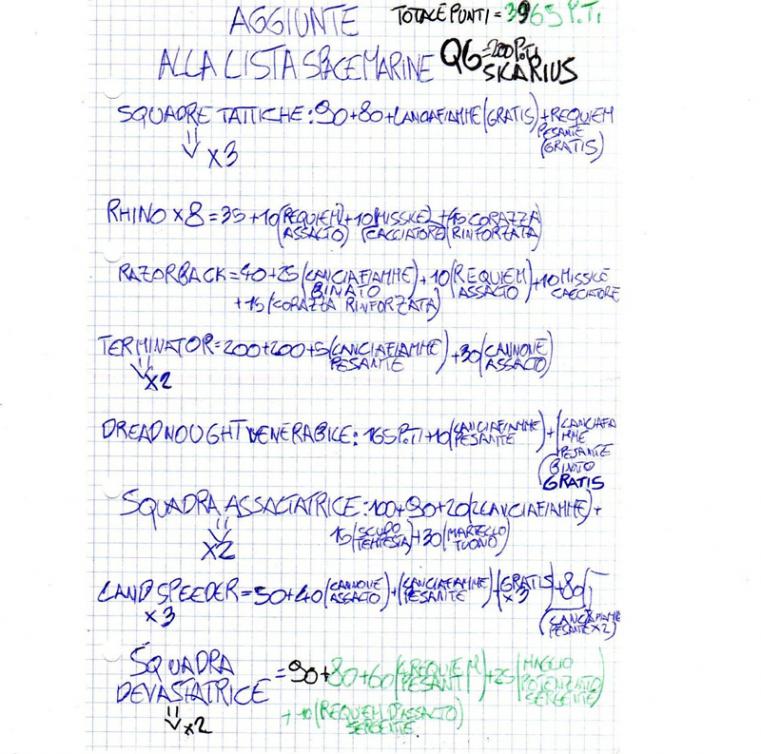 AGGIUNTE TOTALE PUNTI = 3965 P.Ti
ALLA LISTA SPACE MARINE Q6=200 P.Ti
SKARIUS
SQUADRE TATTICHE: 90+80+LANCIAFIAMME (GRATIS)+REQUIEM
PESANTE
(GRATIS)
⇓ x3
RHINO x8 = 35+10(REQUIEM)+10(MISSILE)+15(CORAZZA
(ASSALTO) (CACCIATORE) (RINFORZATA)
RAZORBACK=40+25(LANCIAFIAMME)+10(REQUIEM)+10 MISSILE
BINATO ASSALTO CACCIATORE
+15(CORAZZA RINFORZATA)
TERMINATOR=200+200+5(LANCIAFIAMME)+30(CANNONE)
PESANTE ASSALTO
⇓ x2
DREADNOUGHT VENERABILE: 165 P.Ti+10(LANCIAFIAMME)+(LANCIAFIA
PESANTE MME
PESANTE
BINATO
GRATIS
SQUADRA ASSALTATRICE: 100+90+20(2 LANCIAFIAMME)+
15(SCUDO)+30(MARTELLO)
TEMPESTA TUONO
⇓ x2
LAND SPEEDER=50+40(CANNONE)+(LANCIAFIAMME)+(GRATIS)+80(
ASSALTO PESANTE x3
x3 (LANCIAFIAMME
PESANTE x2)
SQUADRA
DEVASTATRICE =90+80+60(4 REQUIEM)+25(MAGLIO
PESANTI POTENZIATO
SERGENTE
+10(REQUIEM D'ASSALTO)
SERGENTE
⇓ x2